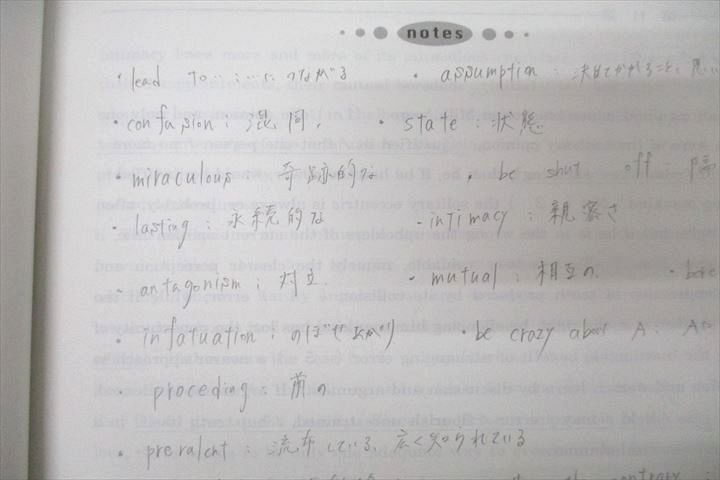 notes
・lead to……につながる ・assumption：決めてかかること、思い
・confusion：混同, ・state：状態
・miraculous：奇跡的な ・be shut off：隔
・lasting：永続的な ・intimacy：親密さ
・antagonism：対立 ・mutual：相互の ・bore
・infatuation：のぼせあがり ・be crazy about A：A
・proceding：前の
・prevalent：流布している、広く知られている
the contrary